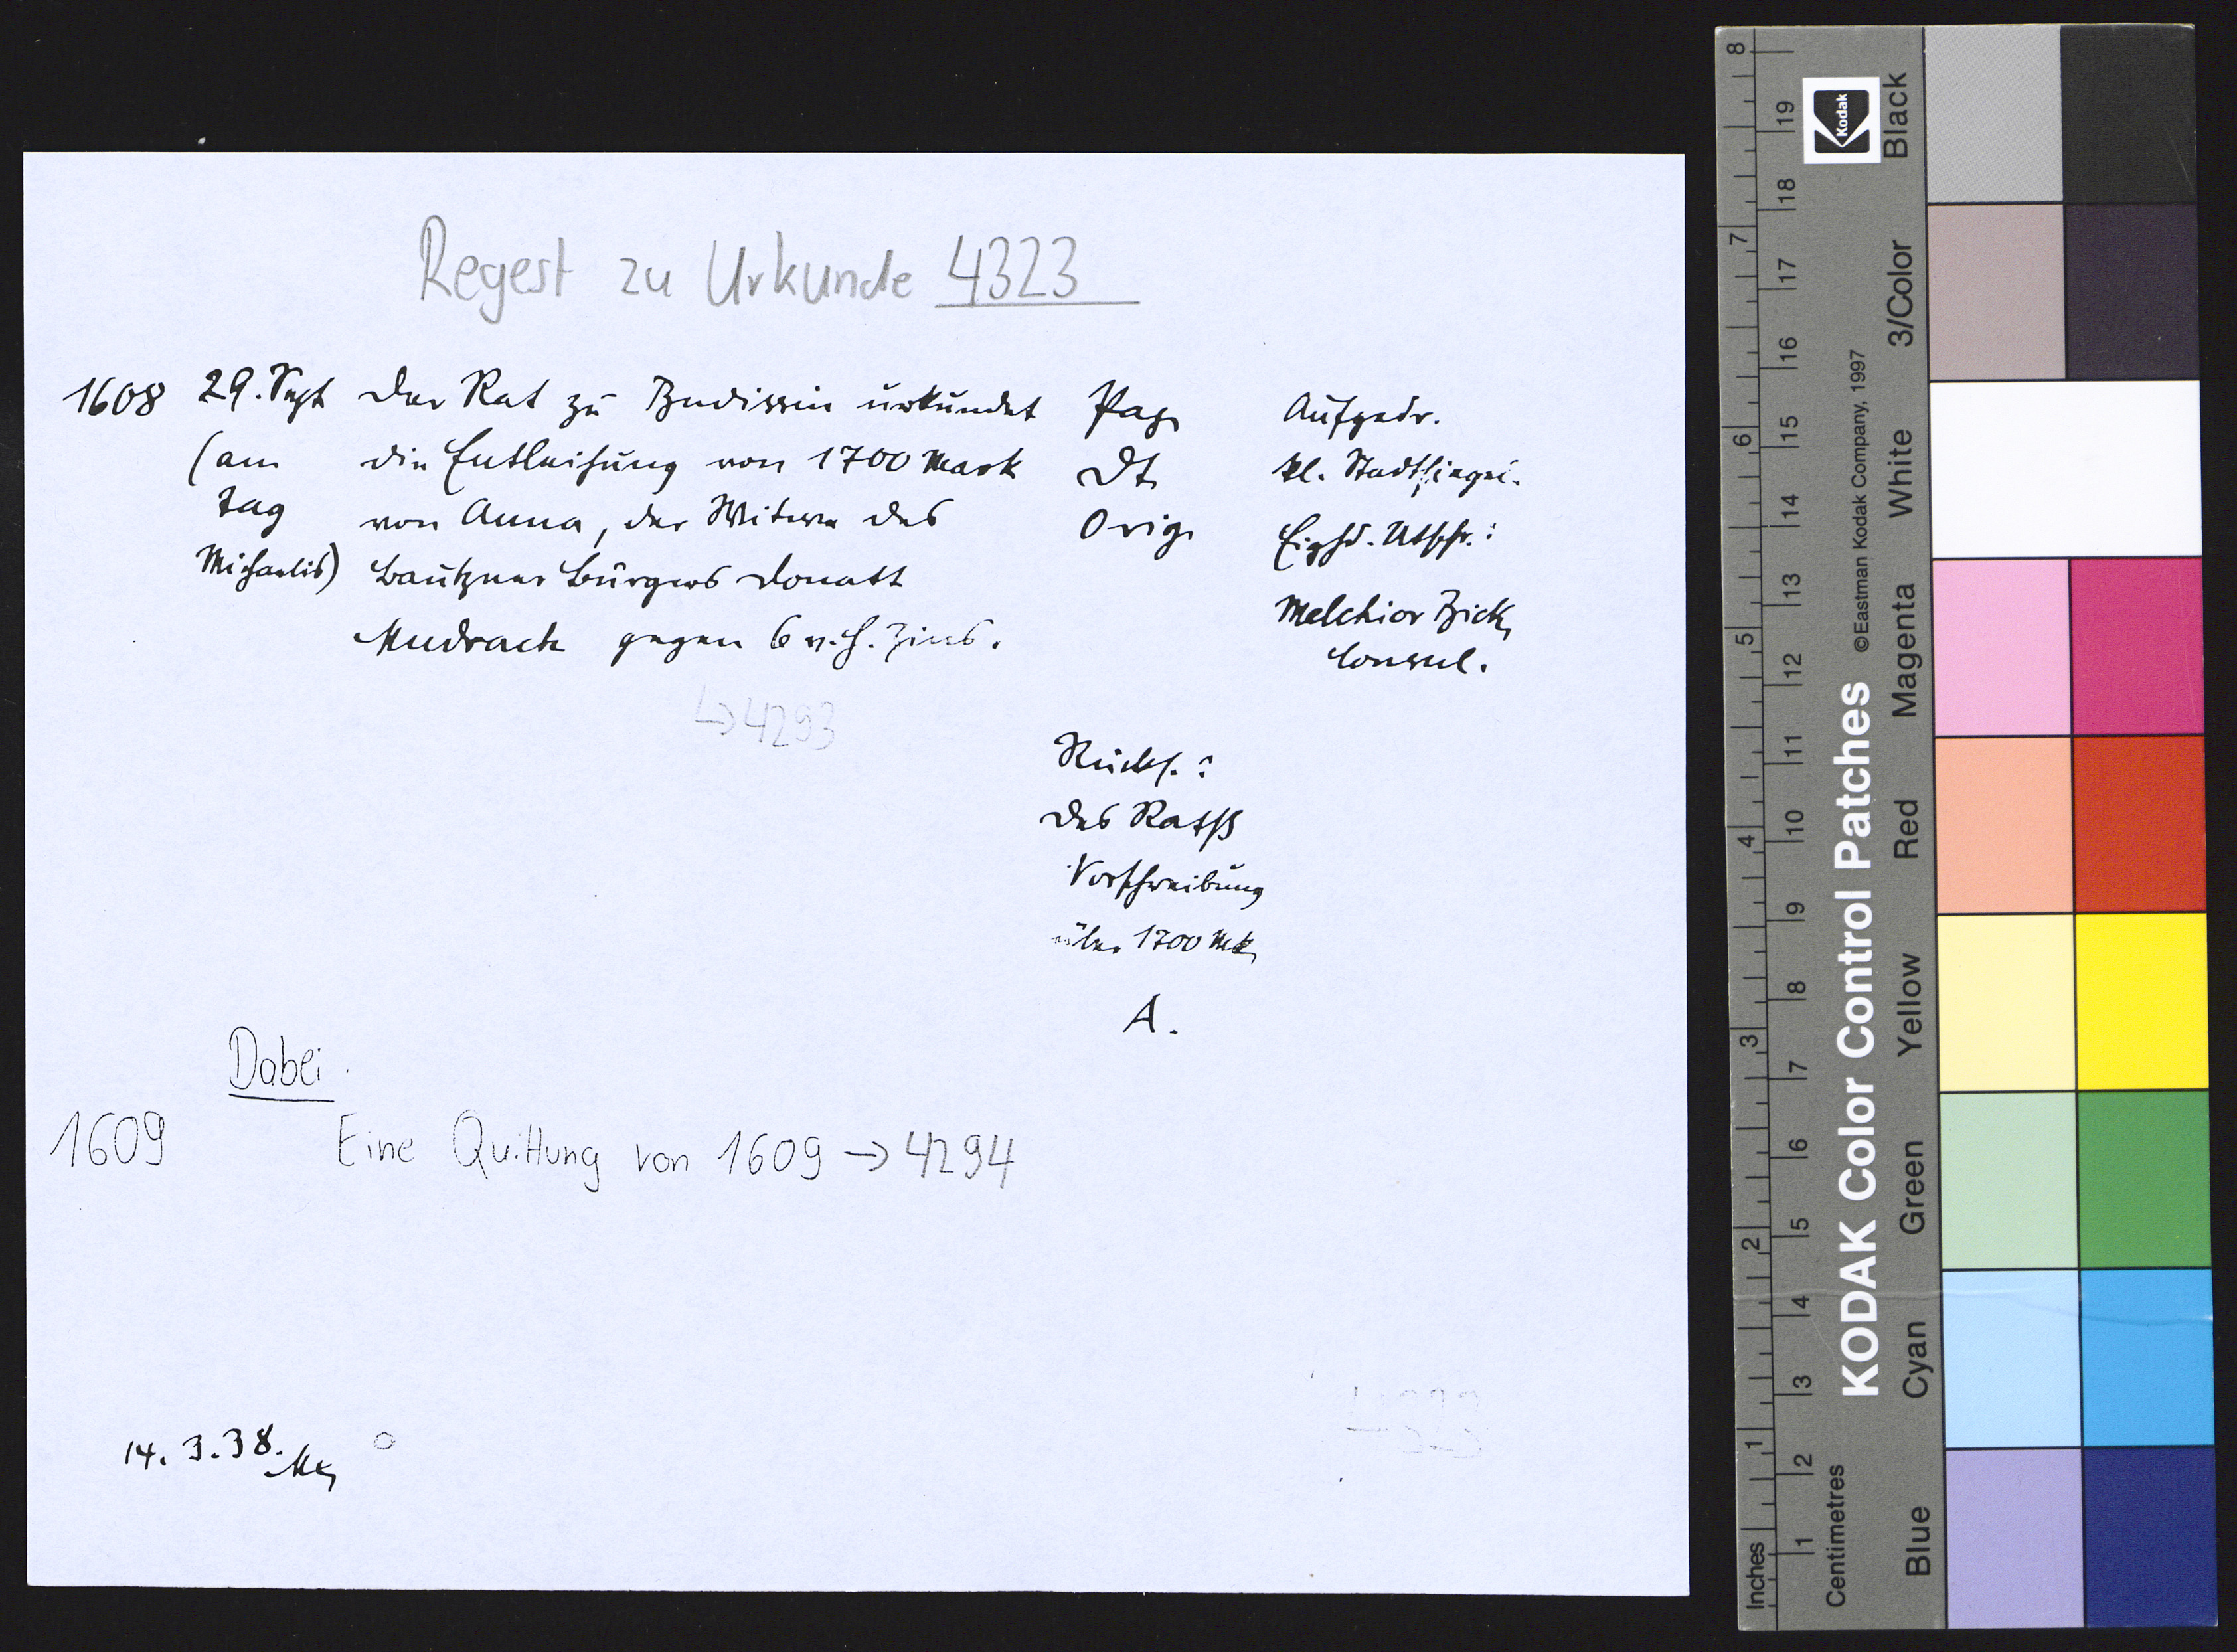 Regest zu Urkunde 4323
1608 29. Sept Der Rat zu Budissin urkundet Pap. Aufgedr.
(am die Entleihung von 1700 Mark Dt. kl. Stadtsiegel.
Tag von Anna, der Witwe des Orig. Eighd. Utschr.:
Michaelis) Bautzner Bürgers Donatt
Melchior Zick,
Mudrack gegen 6 v.H. Zins. Consul.
↳ 4293
Rücks.:
Des Rathß
Vorschreibung
über 1700 Mk.
A.
Dabei.
1609 Eine Quittung von 1609 → 4294
14. 3. 38.
Inches 1 2 3 4 5 6 7 8
Centimetres 1 2 3 4 5 6 7 8 9 10 11 12 13 14 15 16 17 18 19
KODAK Color Control Patches ©Eastman Kodak Company, 1997
Kodak
Blue Cyan Green Yellow Red Magenta White 3/Color Black